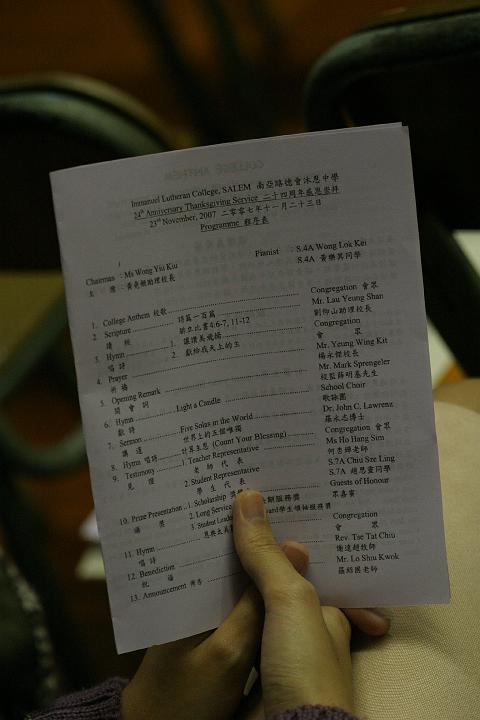 Immanuel Lutheran College, SALEM 南亞路德會沐恩中學
24th Anniversary Thanksgiving Service 二十四周年感恩崇拜
23rd November, 2007 二零零七年十一月二十三日
Programme 程序表
Chairman : Ms Wong Yiu Kui
主 席 : 黃堯 助理校長
Pianist : S.4A Wong Lok Kei
S.4A 黃樂其同學
1. College Anthem 校歌 Congregation 會眾
2. Scripture 詩篇一百篇 Mr. Lau Yeung Shan
讀 經 哥立比書4:6-7, 11-12 劉仰山助理校長
3. Hymn 1. 讓讚美飛揚 Congregation
唱詩 2. 獻給我天上的主 會 眾
4. Prayer Mr. Yeung Wing Kit
祈禱 楊永傑校長
5. Opening Remark Mr. Mark Sprengeler
開 會 詞 校監薛明基先生
6. Hymn Light a Candle School Choir
獻詩 歌詠團
7. Sermon Five Solas in the World Dr. John C. Lawrenz
講 道 世界上的五個唯獨 羅永志博士
8. Hymn 唱詩 計算主恩 (Count Your Blessing) Congregation 會眾
9. Testimony 1. Teacher Representative Ms Ho Hang Sim
見 證 老 師 代 表 何杏嬋老師
2. Student Representative S.7A Chiu Sze Ling
學 生 代 表 S.7A 趙思靈同學
10. Prize Presentation 1. Scholarship Guests of Honour
頒 獎 2. Long Service 期服務獎 眾嘉賓
3. Student Leader ward學生領袖服務獎
11. Hymn Congregation
唱詩 會 眾
12. Benediction Rev. Tse Tat Chiu
祝 福 謝達超牧師
13. Announcement 報告 Mr. Lo Shiu Kwok
羅紹國老師